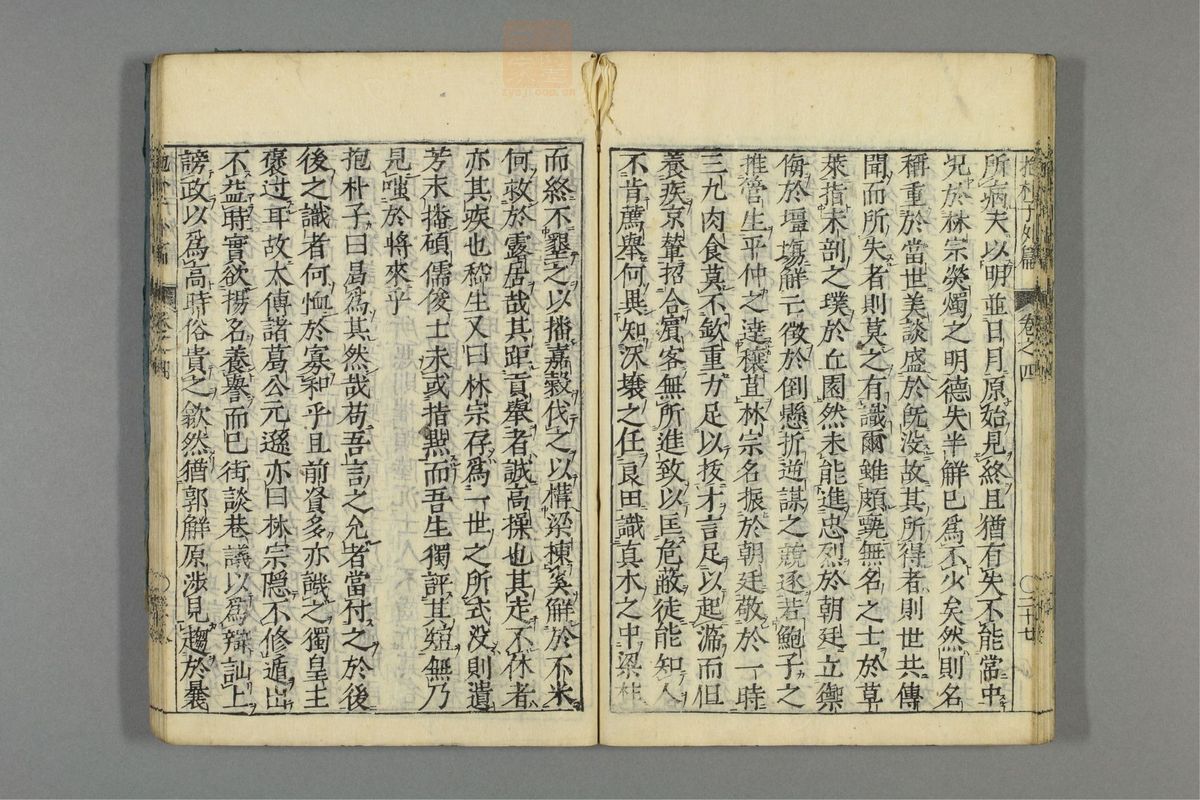 抱朴子外篇 卷之四 〇二十七
所病夫以明並日月原始見終且猶有失不能常中
況於林宗熒燭之明德失半解已爲不少矣然則名
稱重於當世美談盛於既没故其所得者則世共傳
聞而所失者則莫之有識爾雖頗甄無名之士於草
萊指未剖之璞於丘園然未能進忠烈於朝廷立禦
侮於壃埸解亡徵於倒懸折逆謀之競逐若鮑子之
推管生平仲之達穰苴林宗名振於朝廷敬於一時
三九肉食莫不欽重力足以拔才言足以起滯而但
養疾京輦招合賓客無所進致以匡危蔽徒能知人
不肯薦舉何異知沃壤之任良田識真木之中梁柱
而終不墾之以播嘉穀伐之以構梁棟奚解於不米
何救於露居哉其距貢舉者誠高操也其走不休者
亦其疾也嵇生又曰林宗存爲一世之所式没則遺
芳未掩碩儒俊士未或指㸃而吾生獨評其短無乃
見嗤於將來乎
抱朴子曰曷爲其然哉苟吾言之允者當付之於後
後之識者何恤於寡和乎且前賢多亦譏之獨皇主
褒过耳故太傅諸葛公元遜亦曰林宗隱不修遁出
不益時實欲揚名養譽而已街談巷議以爲辯訕上
謗政以爲高時俗貴之歙然猶郭解原涉見趨於曩